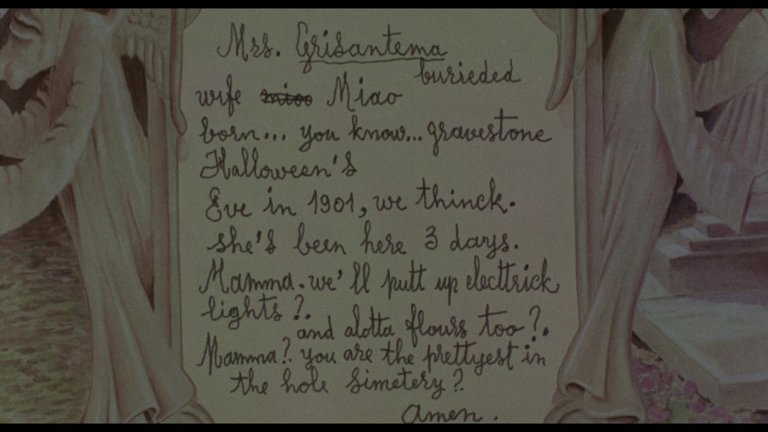 Mrs. Grisantema
burieded
wife miao Miao
born... you know... gravestone
Halloween's
Eve in 1901, we thinck.
she's been here 3 days.
Mamma. we'll putt up electtrick
lights?.
and alotta flours too?.
Mamma? you are the prettyest in
the hole simetery?
amen.